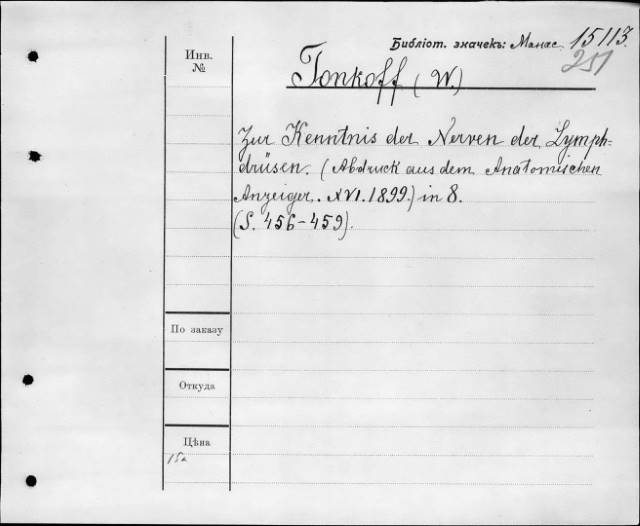 Библіот. значекъ: Манас. 15113.
251
Инв.
№
Tonkoff (W.)
Zur Kenntnis der Nerven der Lymph=
drüsen. (Abdruck aus dem Anatomischen
Anzeiger. XVI. 1899.) in 8.
(S. 456-459).
По заказу
Откуда
Цѣна
15a